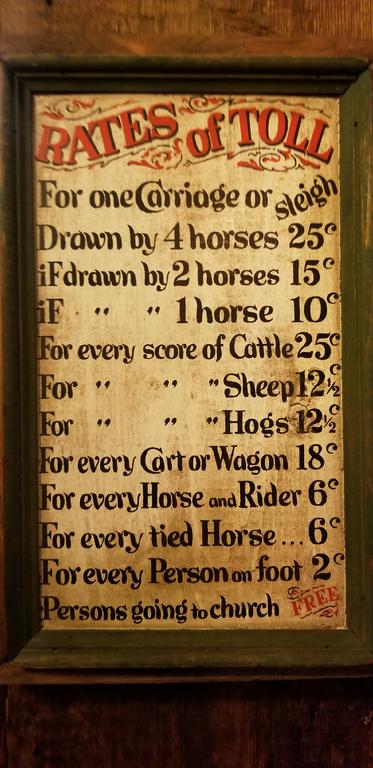 RATES of TOLL
For one Carriage or sleigh
Drawn by 4 horses 25¢
iF drawn by 2 horses 15¢
iF " " 1 horse 10¢
For every score of Cattle 25¢
For " " " Sheep 12½¢
For " " " Hogs 12½¢
For every Cart or Wagon 18¢
For every Horse and Rider 6¢
For every tied Horse... 6¢
For every Person on foot 2¢
Persons going to church FREE